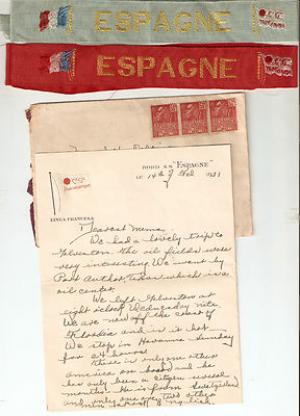 ESPAGNE
ESPAGNE
BORD S.S. "ESPAGNE"
LE 14th of Feb 1931
Dearest Mema,
We had a lovely trip to
Galveston. The oil fields were
very interesting. We went by
Port Arthur, Texas which is a
oil center.
We left Galveston at
eight o'clock Wednesday nite
We are now off the coast of
Florida and is it hot
We stop in Havanna Sunday
for 24 hours.
There is only one other
America on board and he
has only been a citizen several
months. He is from Switzerland
and only one any two others